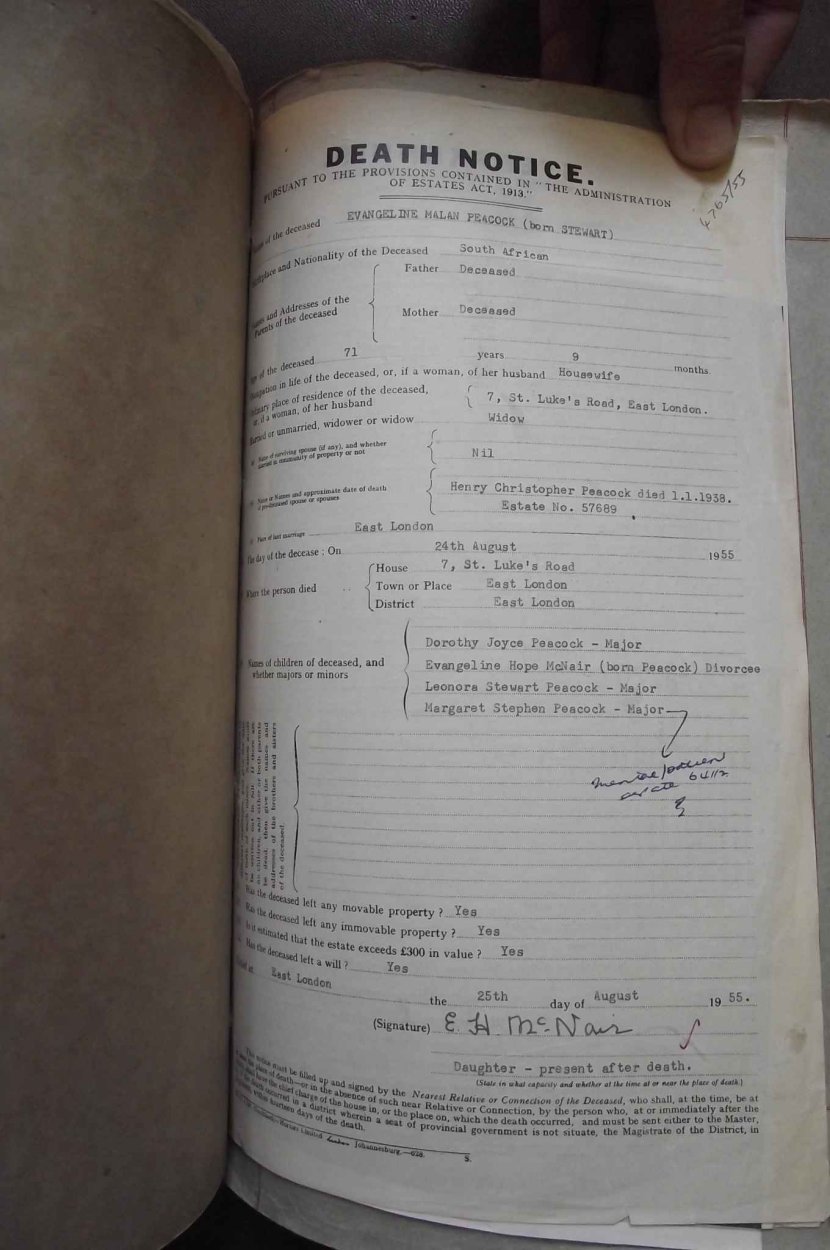 DEATH NOTICE.
PURSUANT TO THE PROVISIONS CONTAINED IN "THE ADMINISTRATION
OF ESTATES ACT, 1913."
4765/55
of the deceased EVANGELINE MALAN PEACOCK (born STEWART)
Birthplace and Nationality of the Deceased South African
Names and Addresses of the
Parents of the deceased
Father Deceased
Mother Deceased
Age of the deceased 71 years 9 months.
Occupation in life of the deceased, or, if a woman, of her husband Housewife
Ordinary place of residence of the deceased,
or if a woman, of her husband
7, St. Luke's Road, East London.
Married or unmarried, widower or widow Widow
Name of surviving spouse (if any), and whether
married in community of property or not
Nil
Name or Names and approximate date of death
of predeceased spouse or spouses
Henry Christopher Peacock died 1.1.1938.
Estate No. 57689
Place of last marriage East London
The day of the decease : On 24th August 1955
Where the person died
House 7, St. Luke's Road
Town or Place East London
District East London
Names of children of deceased, and
whether majors or minors
Dorothy Joyce Peacock - Major
Evangeline Hope McNair (born Peacock) Divorcee
Leonora Stewart Peacock - Major
Margaret Stephen Peacock - Major
be dead, then give the names and
addresses of the brothers and sisters
of the deceased.
Has the deceased left any movable property ? Yes
Has the deceased left any immovable property ? Yes
Is it estimated that the estate exceeds £300 in value ? Yes
Has the deceased left a will ? Yes
Dated at East London
the 25th day of August 19 55.
(Signature) E H McNair
Daughter - present after death.
(State in what capacity and whether at the time at or near the place of death.)
This notice must be filled up and signed by the Nearest Relative or Connection of the Deceased, who shall, at the time, be at
the place of death—or in the absence of such near Relative or Connection, by the person who, at or immediately after the
death shall have the chief charge of the house in, or the place on, which the death occurred, and must be sent either to the Master,
death occurred in a district wherein a seat of provincial government is not situate, the Magistrate of the District, in
within fourteen days of the death.
Limited Johannesburg.—028. S.